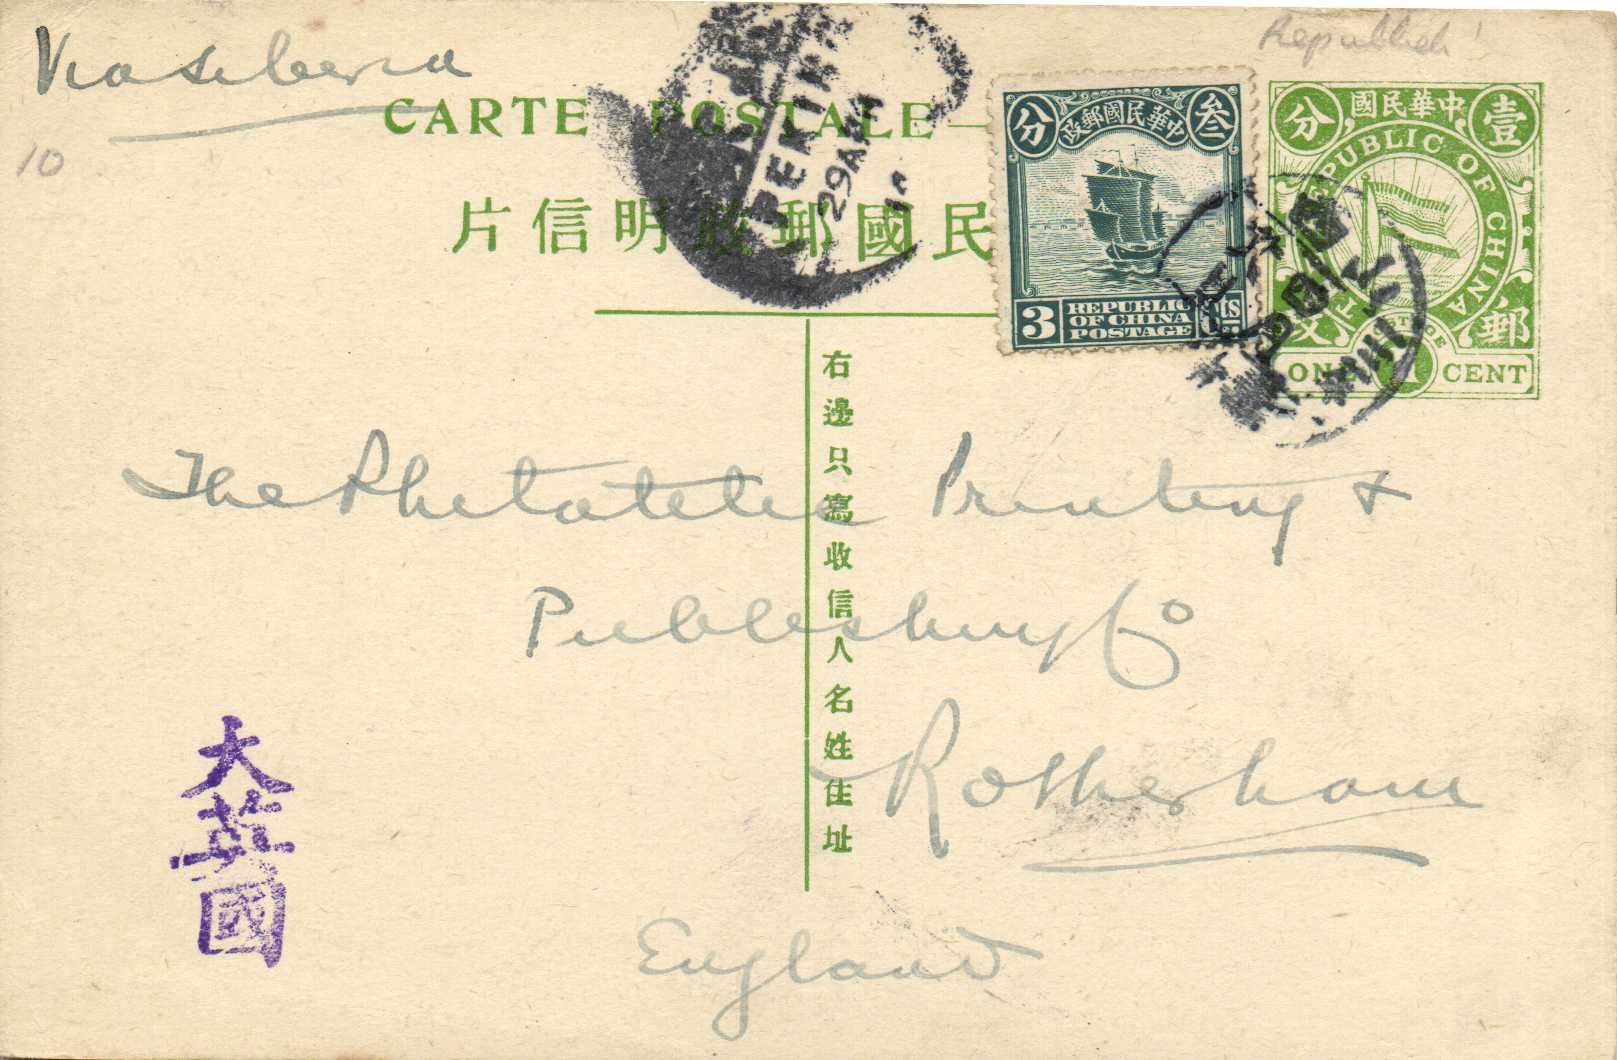 Via Siberia
Republich!
10
CARTE POSTALE—
片信明政郵國民
PEKING
29 APR
分 政郵國民華中 叁
3 REPUBLIC OF CHINA POSTAGE Cts
分 國民華中 壹
REPUBLIC OF CHINA
政 郵
ONE 1 CENT
右邊只寫收信人名姓住址
The Philatelic Printing &
Publishing Co
Rotherham
England
大英國